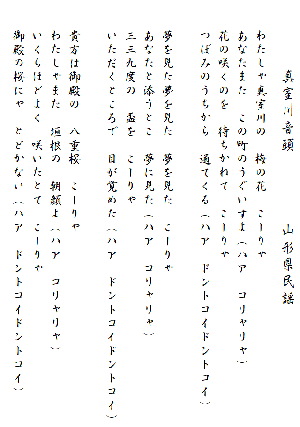 真室川音頭　　　山形県民謡
わたしゃ真室川の　梅の花　こーりゃ
あなたまた　この町のうぐいすよ(ハア　コリャリャ)
花の咲くのを　待ちかねて　こーりゃ
つぼみのうちから　通てくる(ハア　ドントコイドントコイ)
夢を見た夢を見た　夢を見た　こーりゃ
あなたと添うとこ　夢に見た(ハア　コリャリャ)
三三九度の　盃を　こーりゃ
いただくところで　目が覚めた(ハア　ドントコイドントコイ)
貴方は御殿の　八重桜　こーりゃ
わたしゃまた　垣根の　朝顔よ(ハア　コリャリャ)
いくらほどよく　咲いたとて　こーりゃ
御殿の桜にゃ　とどかない(ハア　ドントコイドントコイ)